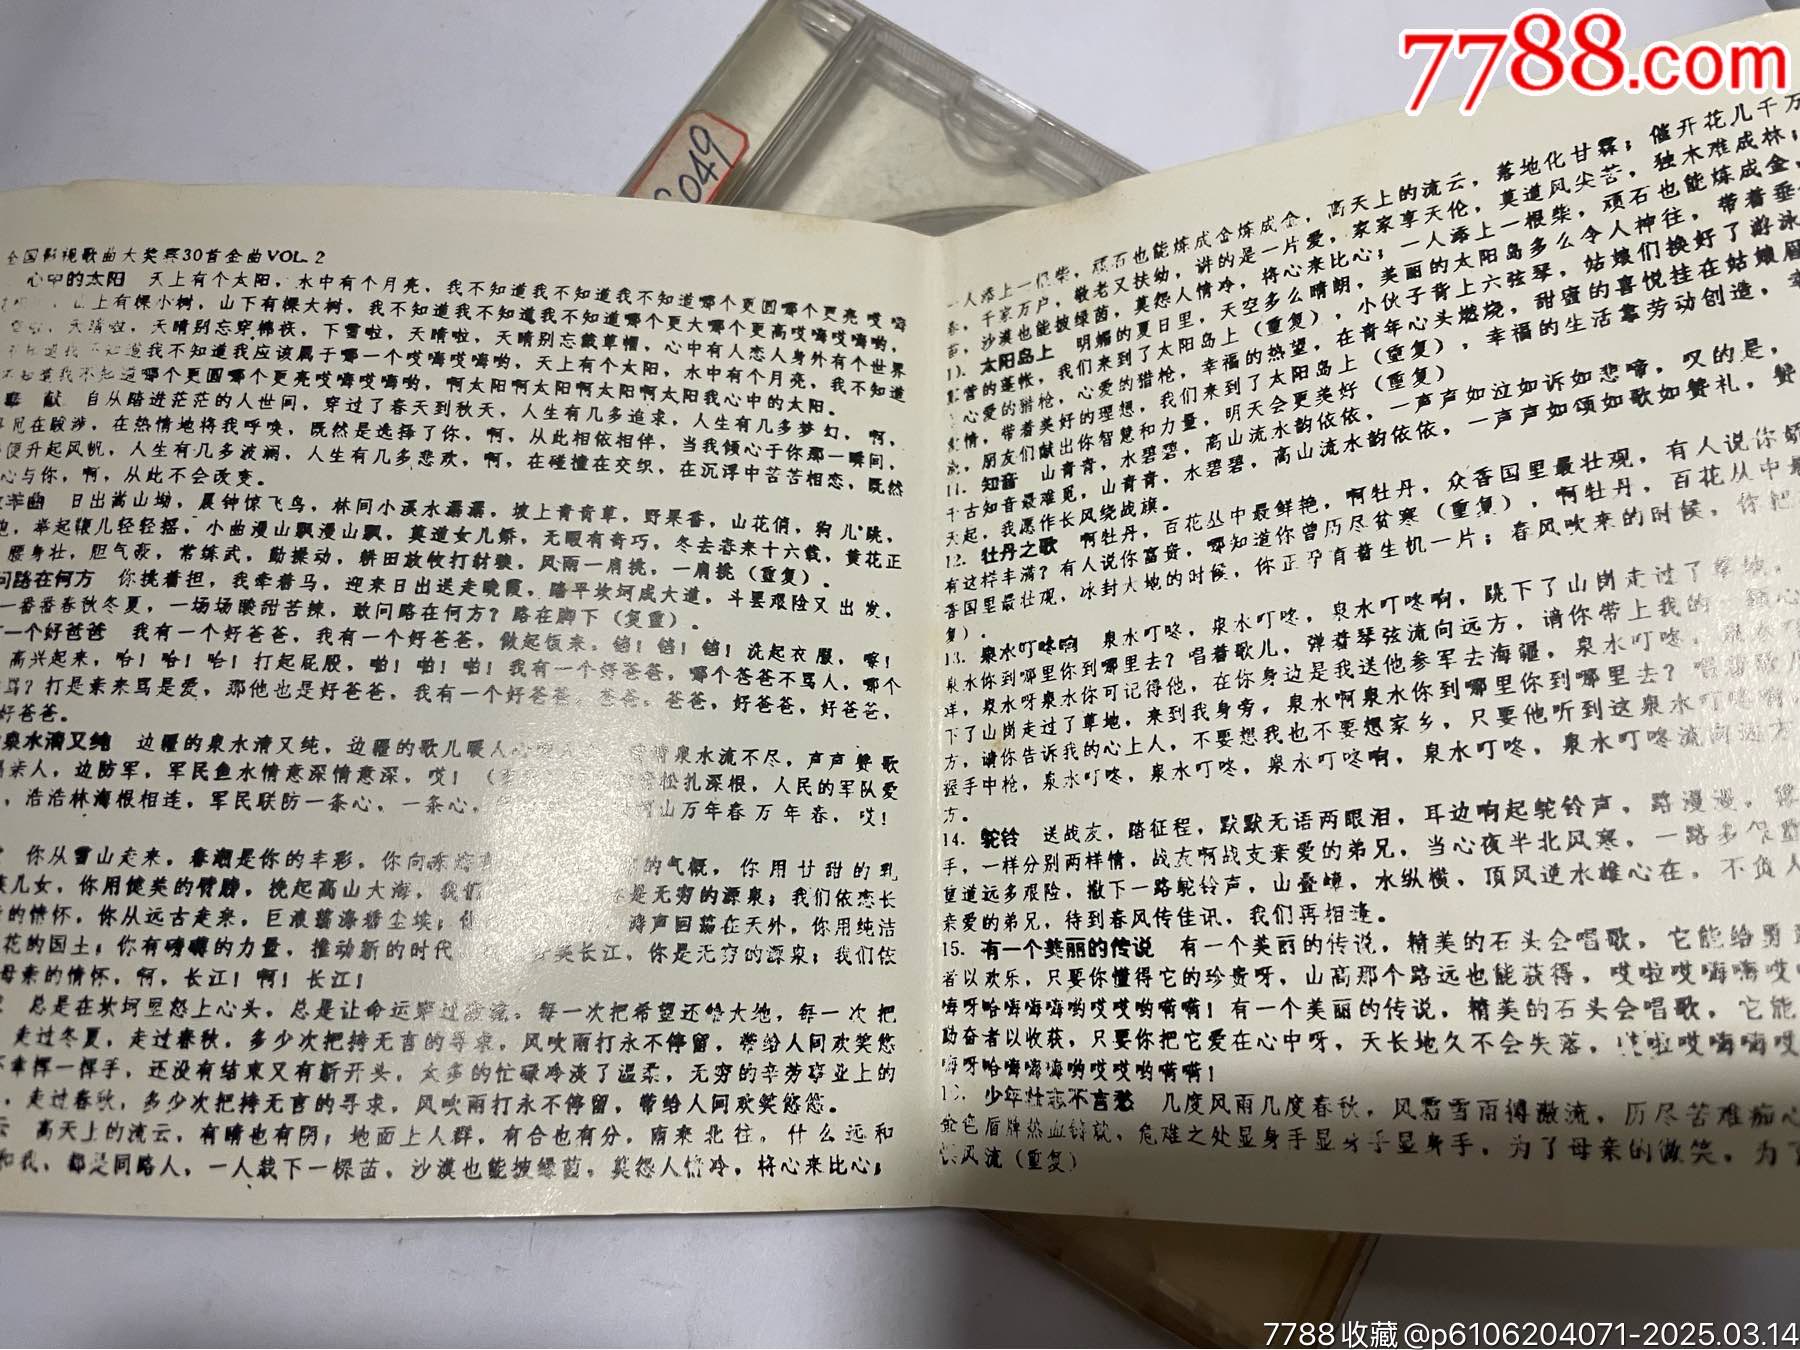 7788.com
049
全国影视歌曲大奖赛30首金曲VOL.2
心中的太阳 天上有个太阳，水中有个月亮，我不知道我不知道我不知道哪个更圆哪个更亮哎嗨
山上有棵小树，山下有棵大树，我不知道我不知道我不知道哪个更大哪个更高哎嗨哎嗨哟，
天晴啦，天晴别忘穿棉袄，下雪啦，天晴啦，天晴别忘戴草帽，心中有人恋人身外有个世界
我不知道我应该属于哪一个哎嗨哎嗨哟，天上有个太阳，水中有个月亮，我不知道
不知道我不知道哪个更圆哪个更亮哎嗨哎嗨哟，啊太阳啊太阳啊太阳啊太阳我心中的太阳。
献 自从踏进茫茫的人世间，穿过了春天到秋天，人生有几多追求，人生有几多梦幻，啊，
在跋涉，在热情地将我呼唤，既然是选择了你，啊，从此相依相伴，当我倾心于你那一瞬间，
便升起风帆，人生有几多波澜，人生有几多悲欢，啊，在碰撞在交织，在沉浮中苦苦相恋，既然
心与你，啊，从此不会改变。
牧羊曲 日出嵩山坳，晨钟惊飞鸟，林间小溪水潺潺，坡上青青草，野果香，山花俏，狗儿跳，
，举起鞭儿轻轻摇，小曲漫山飘漫山飘，莫道女儿娇，无暇有奇巧，冬去春来十六载，黄花正
腰身壮，胆气豪，常练武，勤操动，耕田放牧打豺狼，风雨一肩挑，一肩挑（重复）。
问路在何方 你挑着担，我牵着马，迎来日出送走晚霞，踏平坎坷成大道，斗罢艰险又出发，
一番番春秋冬夏，一场场酸甜苦辣，敢问路在何方？路在脚下（复重）。
一个好爸爸 我有一个好爸爸，我有一个好爸爸，做起饭来，锵！锵！锵！洗起衣服，嚓！
高兴起来，哈！哈！哈！打起屁股，啪！啪！啪！我有一个好爸爸，哪个爸爸不骂人，哪个
骂？打是亲来骂是爱，那他也是好爸爸，我有一个好爸爸，爸爸，爸爸，好爸爸，好爸爸，
好爸爸。
泉水清又纯 边疆的泉水清又纯，边疆的歌儿暖人心 泉水流不尽，声声赞歌
亲人，边防军，军民鱼水情意深情意深，哎！ 松扎深根，人民的军队爱
，浩浩林海根相连，军民联防一条心，一条心， 山万年春万年春，哎！
你从雪山走来，春潮是你的丰彩，你向东 的气概，你用甘甜的乳
儿女，你用健美的臂膀，挽起高山大海，我们 是无穷的源泉；我们依恋长
的情怀，你从远古走来，巨浪荡涤着尘埃； 涛声回荡在天外，你用纯洁
花的国土；你有磅礴的力量，推动新的时代 美长江，你是无穷的源泉；我们依
母亲的情怀，啊，长江！啊！长江！
总是在坎坷里怒上心头，总是让命运穿过 流。每一次把希望还给大地，每一次把
走过冬夏，走过春秋，多少次把持无言的寻求。风吹雨打永不停留，带给人间欢笑悠
挥一挥手，还没有结束又有新开头，太多的忙碌冷淡了温柔，无穷的辛劳事业上的
，走过春秋，多少次把持无言的寻求，风吹雨打永不停留，带给人间欢笑悠悠。
云 高天上的流云，有晴也有阴；地面上人群，有合也有分，南来北往。什么远和
和我，都是同路人，一人栽下一棵苗，沙漠也能披绿荫，莫怨人情冷，将心来比心；
一人添上一根柴，顽石也能炼成金炼成金，高天上的流云，落地化甘霖；催开花儿千万
春，千家万户，敬老又扶幼，讲的是一片爱，家家享天伦，莫道风尖苦，独木难成林；
苗，沙漠也能披绿荫，莫怨人情冷，将心来比心；一人添上一根柴，顽石也能炼成金，
太阳岛上 明媚的夏日里，天空多么晴朗，美丽的太阳岛多么令人神往，带着垂
营的蓬帐，我们来到了太阳岛上（重复），小伙子背上六弦琴，姑娘们换好了游泳
心爱的猎枪，心爱的猎枪，幸福的热望，在青年心头燃烧，甜蜜的喜悦挂在姑娘眉
情，带着美好的理想，我们来到了太阳岛上（重复），幸福的生活靠劳动创造，
，朋友们献出你智慧和力量，明天会更美好（重复）
11. 知音 山青青，水碧碧，高山流水韵依依，一声声如泣如诉如悲啼，叹的是，
千古知音最难觅，山青青，水碧碧，高山流水韵依依，一声声如颂如歌如赞礼，赞
天起，我愿作长风绕战旗。
12. 牡丹之歌 啊牡丹，百花丛中最鲜艳，啊牡丹，众香国里最壮观，有人说你娇
有这样丰满？有人说你富贵，哪知道你曾历尽贫寒（重复），啊牡丹，百花丛中最
香国里最壮观，冰封大地的时候，你正孕育着生机一片；春风吹来的时候，你把
复）。
13. 泉水叮咚响 泉水叮咚，泉水叮咚，泉水叮咚响，跳下了山岗走过了草地，
泉水你到哪里你到哪里去？唱着歌儿，弹着琴弦流向远方，请你带上我的 心
洋，泉水呀泉水你可记得他，在你身边是我送他参军去海疆，泉水叮咚，
下了山岗走过了草地，来到我身旁，泉水啊泉水你到哪里你到哪里去？唱着歌儿
方，请你告诉我的心上人，不要想我也不要想家乡，只要他听到这泉水叮咚响
握手中枪，泉水叮咚，泉水叮咚，泉水叮咚响，泉水叮咚，泉水叮咚流向远方
方。
14. 驼铃 送战友，踏征程，默默无语两眼泪，耳边响起驼铃声，路漫漫，
手，一样分别两样情，战友啊战友亲爱的弟兄，当心夜半北风寒，一路多保重
重道远多艰险，撒下一路驼铃声，山叠嶂，水纵横，顶风逆水雄心在，不负人
亲爱的弟兄，待到春风传佳讯，我们再相逢。
15. 有一个美丽的传说 有一个美丽的传说，精美的石头会唱歌，它能给勇
者以欢乐，只要你懂得它的珍贵呀，山高那个路远也能获得，哎啦哎嗨嗨哎
嗨呀哈嗨嗨嗨哟哎哎哟嗬嗬！有一个美丽的传说，精美的石头会唱歌，它能
勤奋者以收获，只要你把它爱在心中呀，天长地久不会失落，哎啦哎嗨嗨哎
嗨呀哈嗨嗨嗨哟哎哎哟嗬嗬！
16. 少年壮志不言愁 几度风雨几度春秋，风霜雪雨搏激流，历尽苦难痴心
金色盾牌热血铸就，危难之处显身手显身手显身手，为了母亲的微笑，为了
风流（重复）
7788收藏@p6106204071-2025.03.14